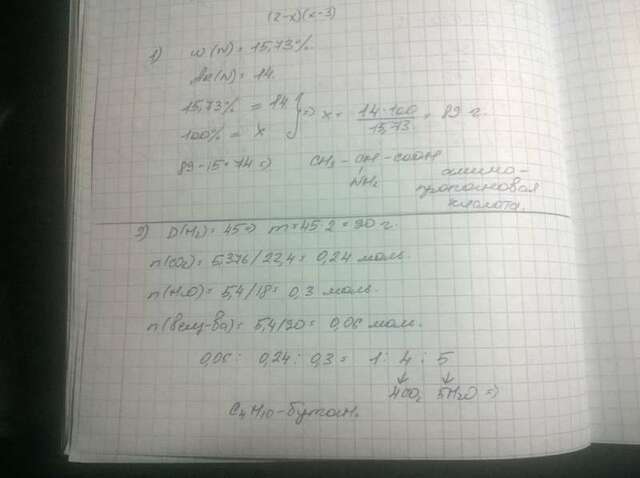 (2-x)(x-3)
1) w(N) = 15,73%.
Ar(N) = 14.
15,73% = 14
100% = x
} => x = 14·100 / 15,73 = 89 г.
89-15=74 =>
CH3 - CH - COOH
NH2
амино-
пропановая
кислота.
2) D(H2) = 45 => m = 45·2 = 90 г.
n(CO2) = 5,376/22,4 = 0,24 моль.
n(H2O) = 5,4/18 = 0,3 моль.
n(вещ-ва) = 5,4/90 = 0,06 моль.
0,06 : 0,24 : 0,3 = 1 : 4 : 5
4CO2 5H2O =>
C4H10 - бутан.